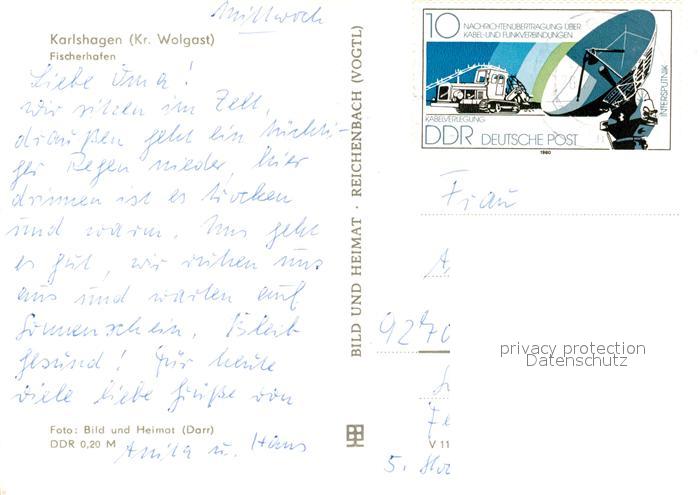 Mittwoch
Karlshagen (Kr. Wolgast)
Fischerhafen
Liebe Oma!
Wir sitzen im Zelt,
draußen geht ein tüchti-
ger Regen nieder, hier
drinnen ist es trocken
und warm. Uns geht
es gut, wir ruhen uns
aus und warten auf
Sonnenschein. Bleib
gesund! Für heute
viele liebe Grüße von
Anita u. Hans
Foto: Bild und Heimat (Darr)
DDR 0,20 M
BILD UND HEIMAT · REICHENBACH (VOGTL)
10 NACHRICHTENÜBERTRAGUNG ÜBER
KABEL- UND FUNKVERBINDUNGEN
INTERSPUTNIK
KABELVERLEGUNG
DDR DEUTSCHE POST
1980
Frau
privacy protection
Datenschutz
V 11
5.